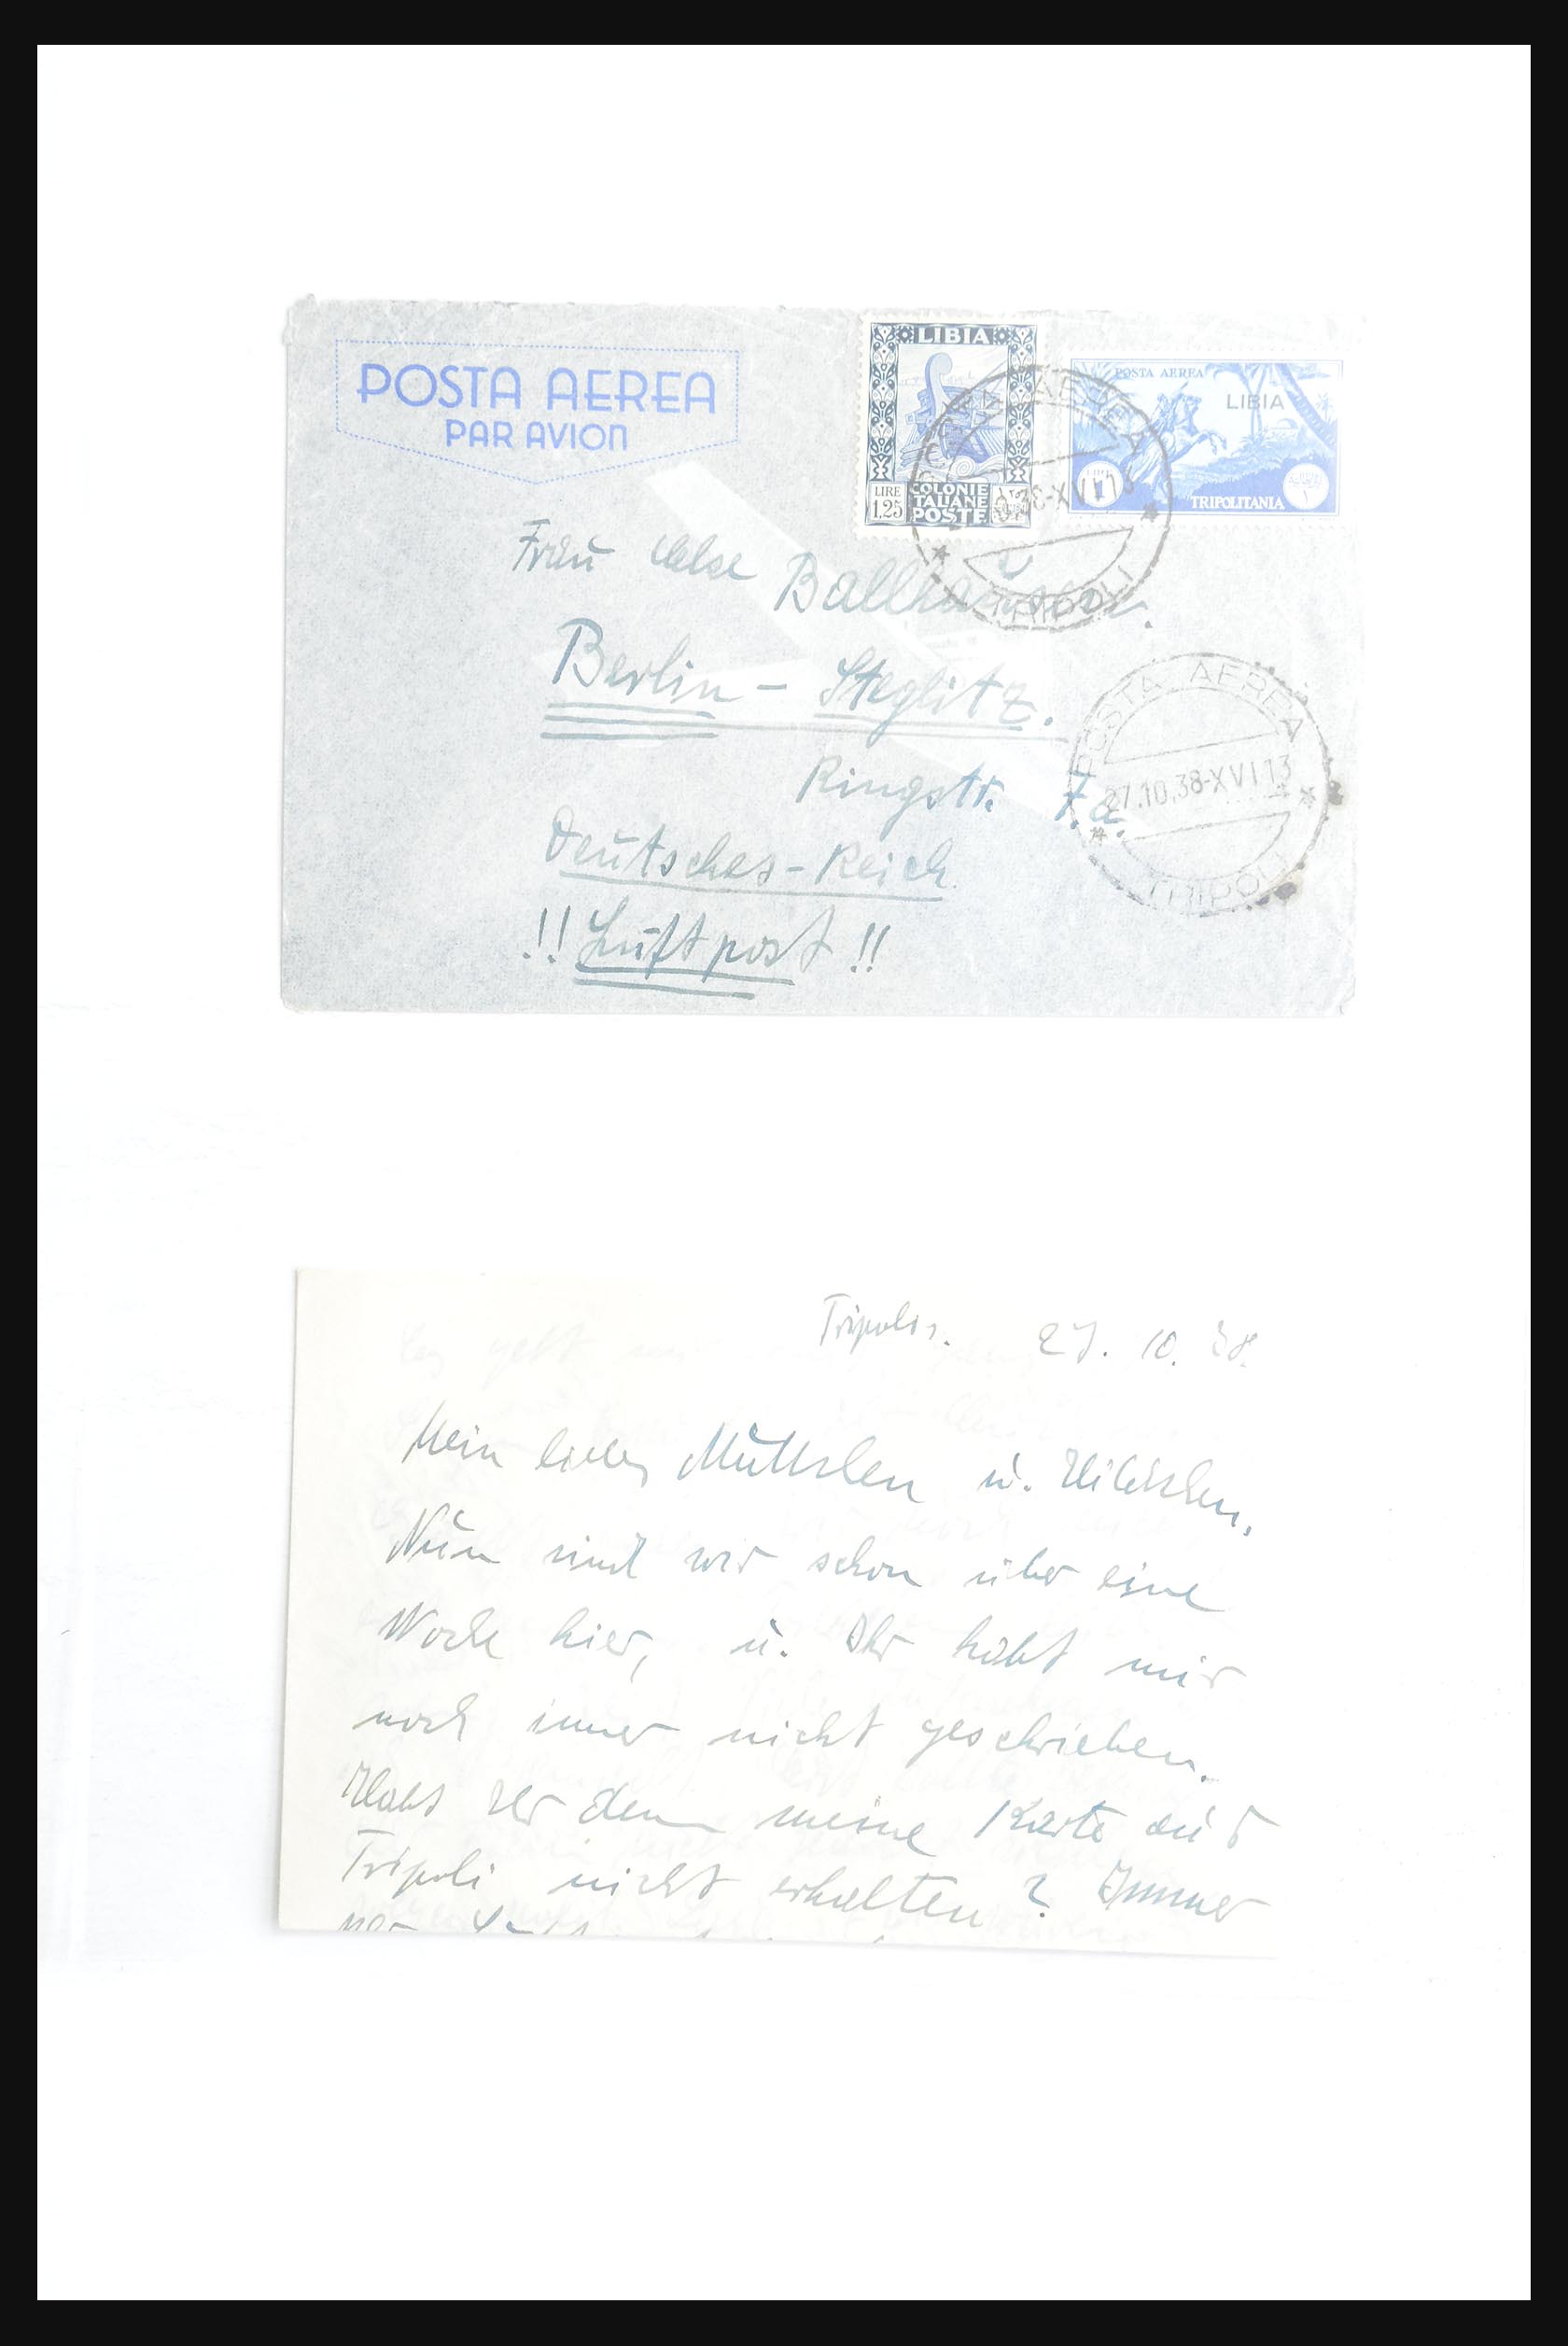 POSTA AEREA
PAR AVION
LIBIA
LIRE
1,25
COLONIE
ITALIANE
POSTE
POSTA AEREA
LIBIA
TRIPOLITANIA
38-XVI 13
TRIPOLI
Frau Else
Berlin - Steglitz.
Ringstr. 7.a.
Deutsches-Reich.
!! Luftpost !!
POSTA AEREA
27.10.38-XVI 13
TRIPOLI
Tripolis. 27. 10. 38.
Mein liebes Muttchen u.
Nun sind wir schon über eine
Woche hier, u. Ihr habt mir
noch immer nicht geschrieben.
Habt Ihr denn meine Karte aus
Tripoli nicht erhalten? Immer